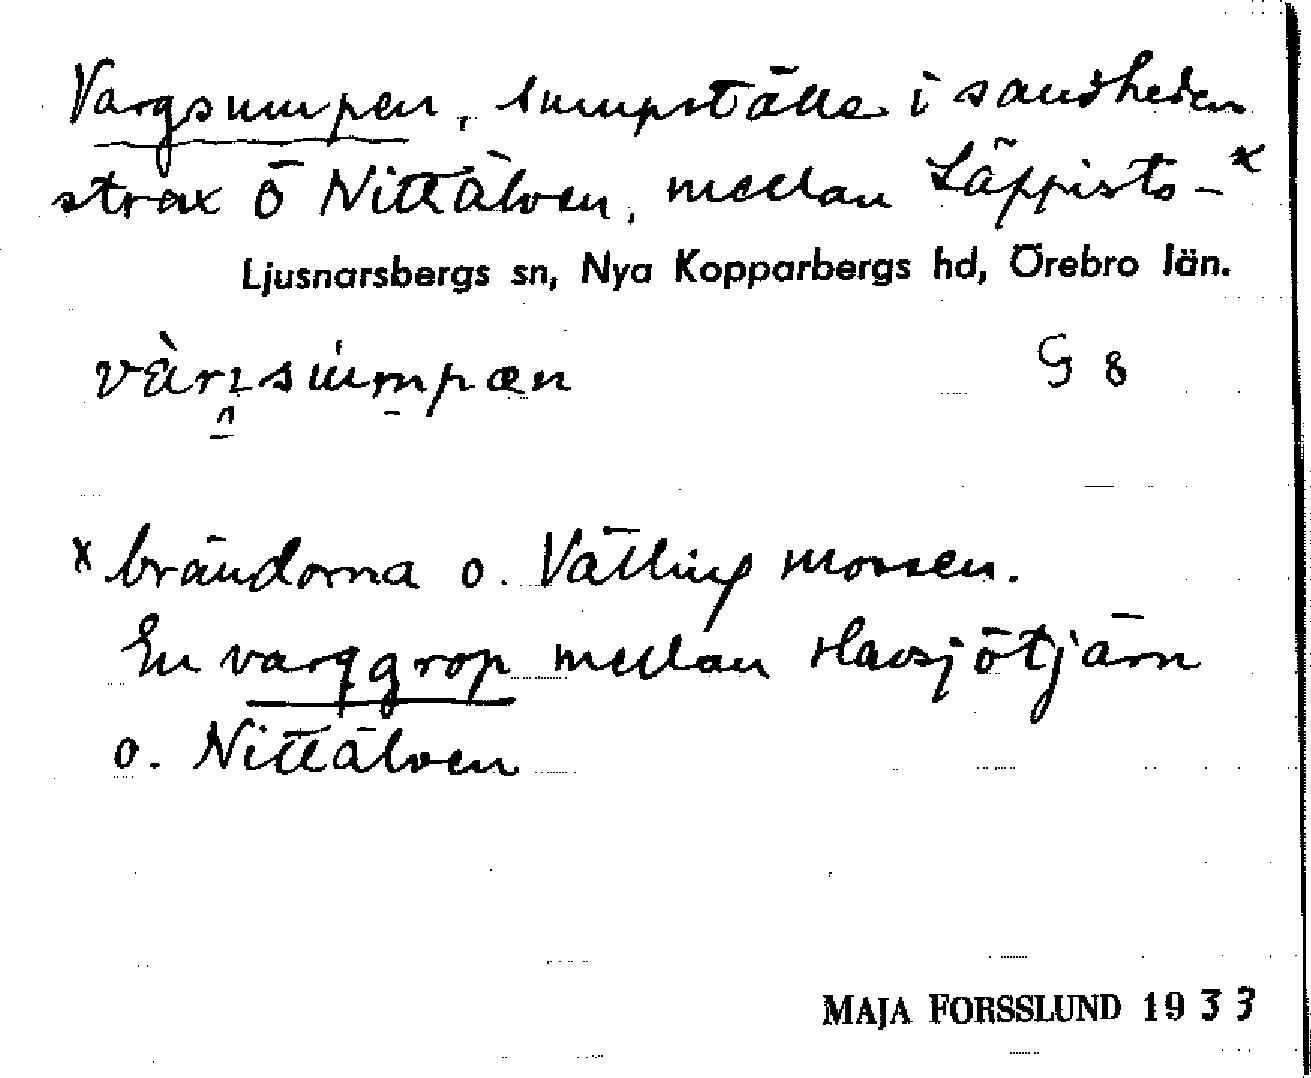 Vargsumpen, sumpställe i sandheden
strax Ö Nittälven, mellan Läppisto-x
Ljusnarsbergs sn, Nya Kopparbergs hd, Örebro län.
G 8
x brändorna o. Välling mossen.
En varggrop mellan Havsjötjärn
o. Nittälven
MAJA FORSSLUND 1933